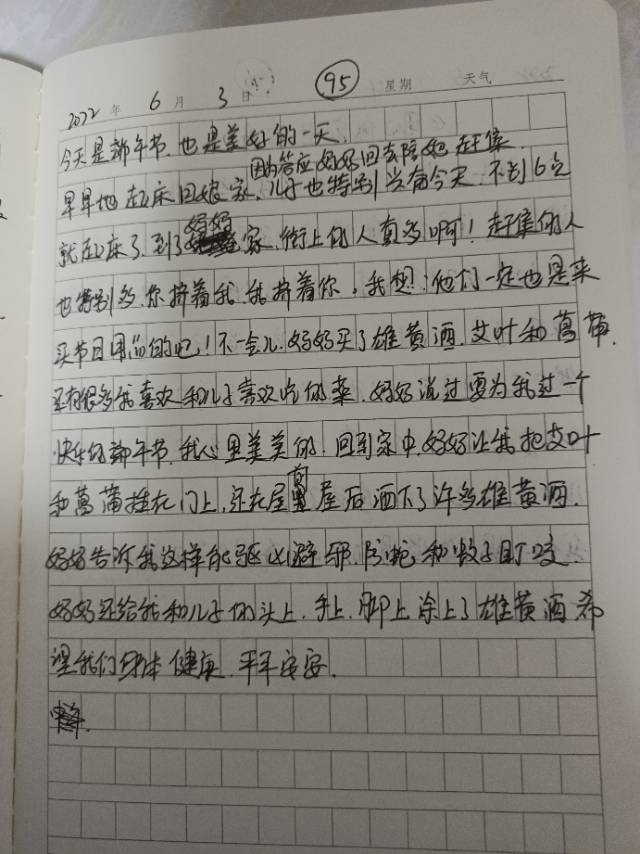 2022年 6月 3日 95 星期 天气
今天是端午节.也是美好的一天.
因为答应妈妈回去陪她赶集.
早早地起床回娘家.儿子也特别当有今天.不到6点
妈妈
就起床了.到了家.街上的人真多啊!赶集的人
也特别多.你挤着我.我挤着你,我想:他们一定也是来
买节日用品的吧!不一会儿.妈妈买了雄黄酒.艾叶和菖蒲.
还有很多我喜欢和儿子喜欢吃的菜.妈妈说过要为我过一个
快乐的端午节.我心里美美的!回到家中.妈妈让我把艾叶
和菖蒲挂在门上,还在屋前屋后洒下了许多雄黄酒.
妈妈告诉我这样能驱凶避邪.防蛇和蚊子叮咬.
妈妈还给我和儿子的头上.手上.脚上涂上了雄黄酒希
望我们身体健康.平平安安.